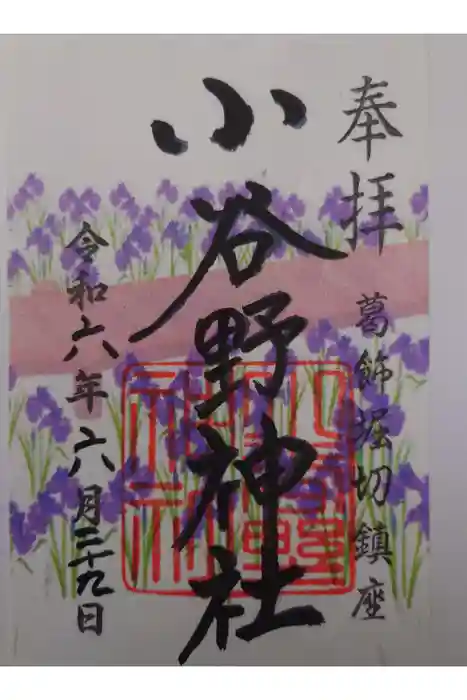 奉拝
葛飾堀切鎮座
小谷野神社
令和六年六月二十九日